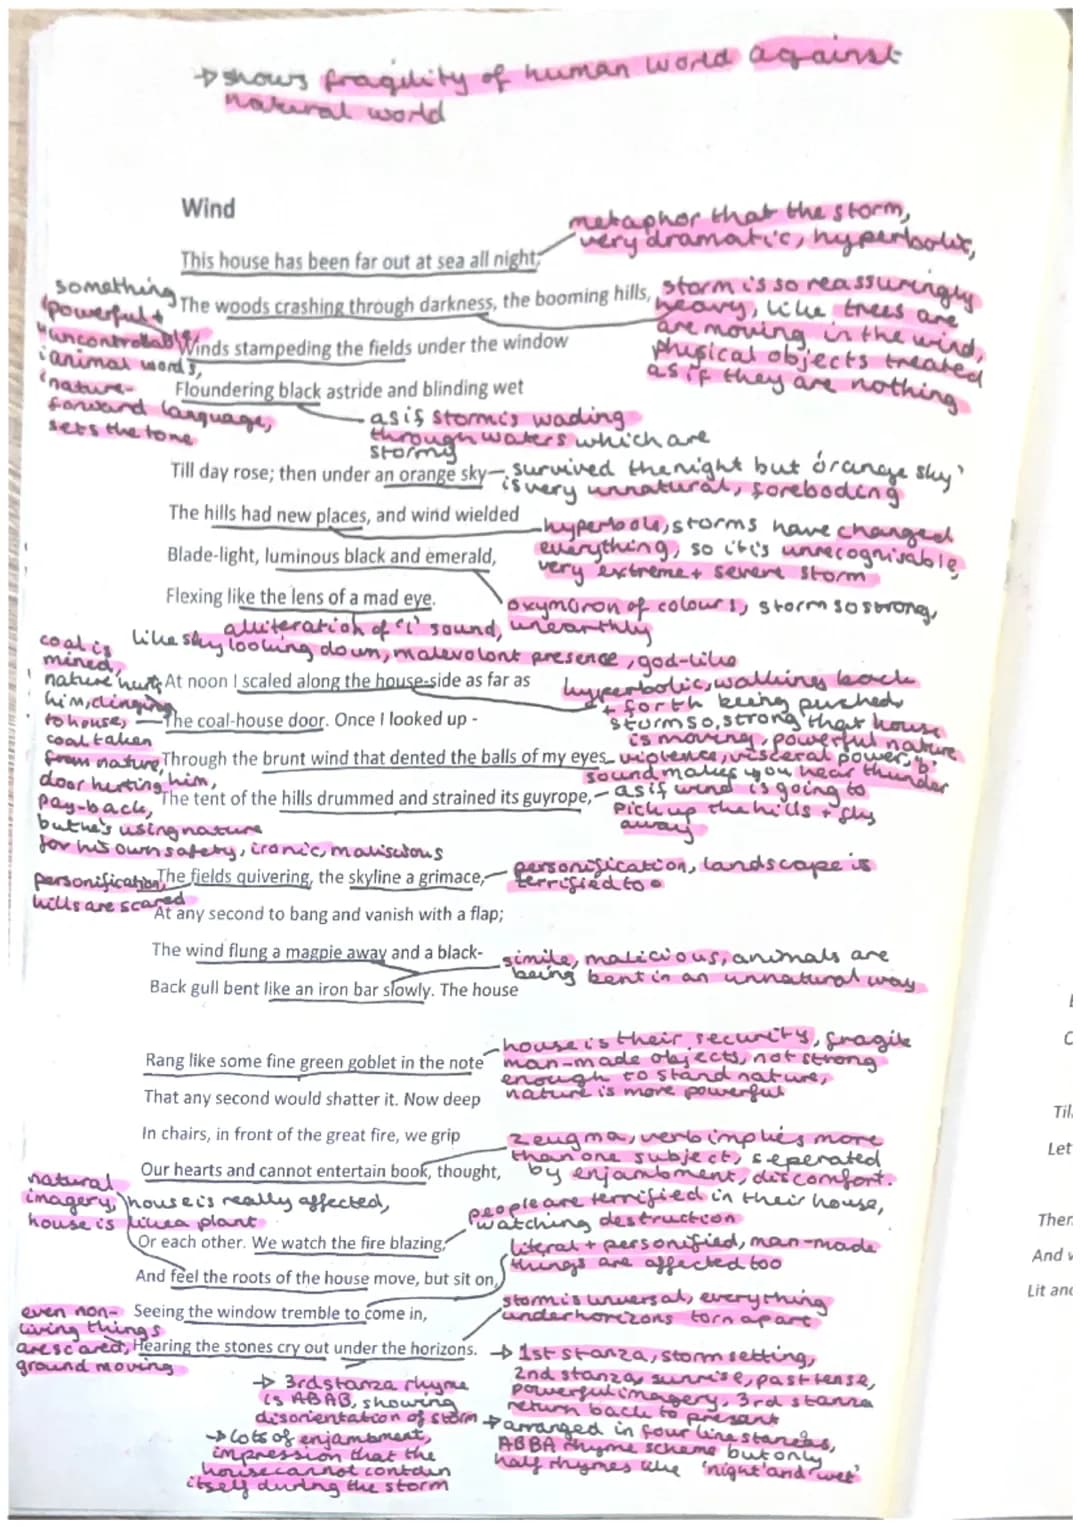 → shows fragility of human world against
natural world
Wind
metaphor that the storm,
very dramatic, hyperbolic,
This house has been far out at sea all night,
something
powerful +
uncontrollable,
animal words,
nature-
forward language,
sets the tone
The woods crashing through darkness, the booming hills,
storm is so reassuringly
heavy, like trees are
are moving in the wind,
physical objects treated
as if they are nothing
Winds stampeding the fields under the window
Floundering black astride and blinding wet
as if storm is wading
through waters which are
stormy
Till day rose; then under an orange sky
survived the night but 'orange sky'
is very unnatural, foreboding
The hills had new places, and wind wielded
hyperbole, storms have changed
everything, so it is unrecognisable,
very extreme + severe storm
Blade-light, luminous black and emerald,
Flexing like the lens of a mad eye.
oxymoron of colours, storm so strong,
unearthly
alliteration of 'l' sound,
like sky looking down, malevolont presence, god-like
coal is
mined,
nature hurts
him, clinging
to house,
coal taken
from nature,
door hurting him,
pay-back,
but he's using nature
for his own safety, ironic, maliscious
At noon I scaled along the house-side as far as
hyperbolic, walking back
+ forth being pushed
storm so, strong that house
is moving, powerful nature
The coal-house door. Once I looked up -
Through the brunt wind that dented the balls of my eyes
violence, visceral power, 'b'
sound makes you hear thunder
The tent of the hills drummed and strained its guyrope,
as if wind is going to
pick up the hills + fly
away
personification,
hills are scared
The fields quivering, the skyline a grimace,
personification, landscape is
terrified to
At any second to bang and vanish with a flap;
The wind flung a magpie away and a black-
simile, malicious, animals are
being bent in an unnatural way
Back gull bent like an iron bar slowly. The house
Rang like some fine green goblet in the note
house is their security, fragile
man-made objects, not strong
enough to stand nature,
nature is more powerful
That any second would shatter it. Now deep
In chairs, in front of the great fire, we grip
zeugma, verb implies more
than one subject, seperated
by enjambment, discomfort.
Our hearts and cannot entertain book, thought,
natural
imagery,
house is
house is really affected,
like a plant
people are terrified in their house,
watching destruction
Or each other. We watch the fire blazing,
literal + personified, man-made
things are affected too
And feel the roots of the house move, but sit on,
Seeing the window tremble to come in,
storm is universal, everything
under horizons torn apart
even non-
living things
are scared,
ground moving
Hearing the stones cry out under the horizons.
→ 1st stanza, storm setting,
2nd stanza, sunrise, past tense,
powerful imagery, 3rd stanza
return back to present
→ 3rd stanza rhyme
is ABAB, showing
disorientation of storm
→ lots of enjambment,
impression that the
house cannot contain
itself during the storm
→ arranged in four line stanzas,
ABBA rhyme scheme but only
half rhymes like 'night' and 'wet'
Til
Let
Then
And
Lit and